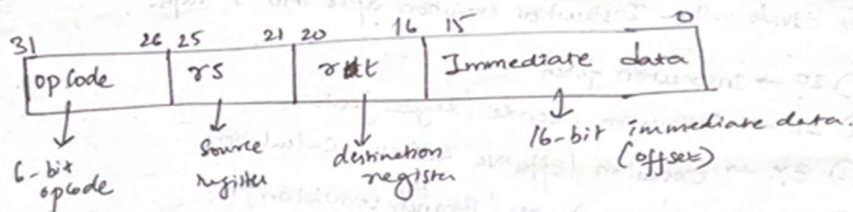 31 26 25 21 20 16 15 0
opcode rs rt Immediate data
6-bit opcode
source register
destination register
16-bit immediate data.
(offset)